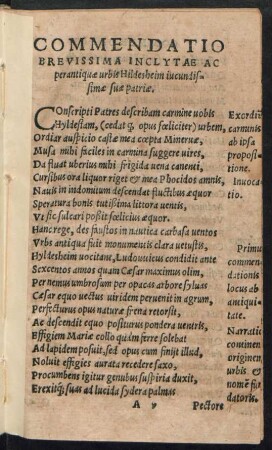 COMMENDATIO
BREVISSIMA INCLYTAE AC
perantiquæ urbis Hildesheim iucundis-
simæ suæ patriæ.
COnscripti Patres describam carmine uobis
Hyldesiam, (cedat q̃, opus fœliciter) urbem,
Ordiar auspicio castæ mea cœpta Mineruæ,
Musa mihi faciles in carmina suggere uires,
Da fluat uberius mihi frigida uena canenti,
Cursibus ora liquor riget & mea Phocidos amnis,
Nauis in indomitum descendat fluctibus æquor
Speratura bonis tutißima littora uentis,
Vt sic sulcari poßit fœlicius æquor.
Hanc rege, des faustos in nautica carbasa uentos
Vrbs antiqua fuit monumentis clara uetustis,
Hyldesheim uocitant, Ludouuicus condidit ante
Sexcentos annos quam Cæsar maximus olim,
Per nemus umbrosum per opacas arbore syluas
Cæsar equo uectus uiridem peruenit in agrum,
Perfecturus opus naturæ frena retorsit,
Ac descendit equo positurus pondera uentris,
Effigiem Mariæ collo quàm ferre solebat
Ad lapidem posuit, sed opus cum finijt illud,
Noluit effigies aurata recedere saxo,
Procumbens igitur genubus suspiria duxit,
Erexitq́; suas ad lucida sydera palmas
A v Pectore
Exordiũ
carminis
ab ipsa
propositi-
one.
Inuoca-
tio.
Primus
commen-
dationis
locus ab
antiqui-
tate.
Narratio
continens
originem
urbis &